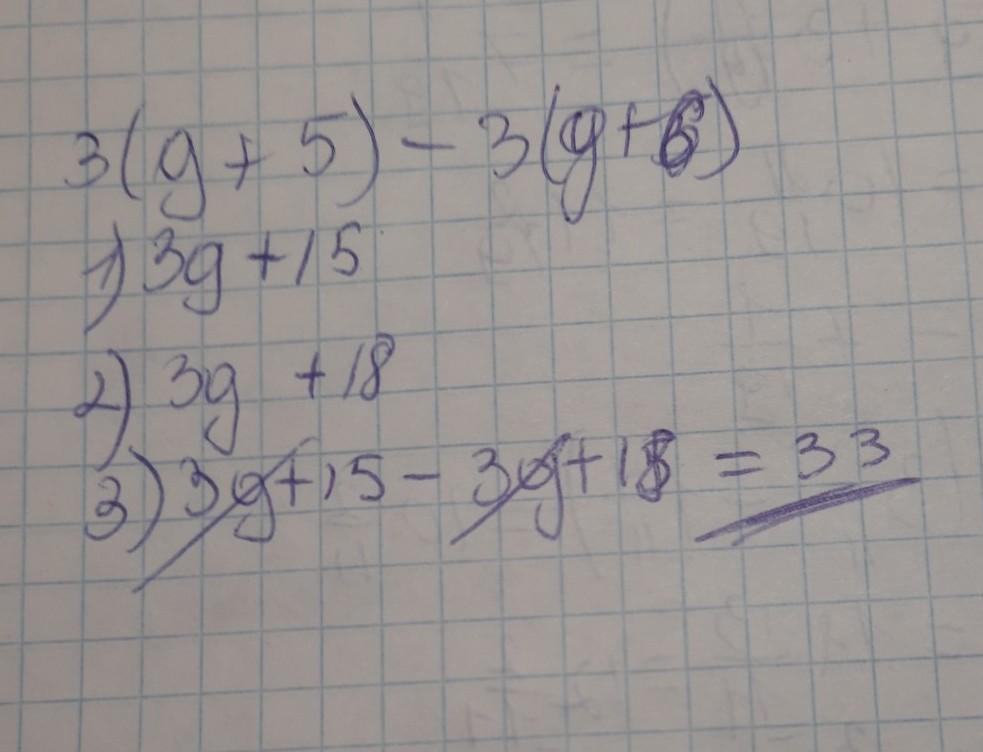 3(g + 5) - 3(g + 6)
1) 3g + 15
2) 3g + 18
3) 3g + 15 - 3g + 18 = 33